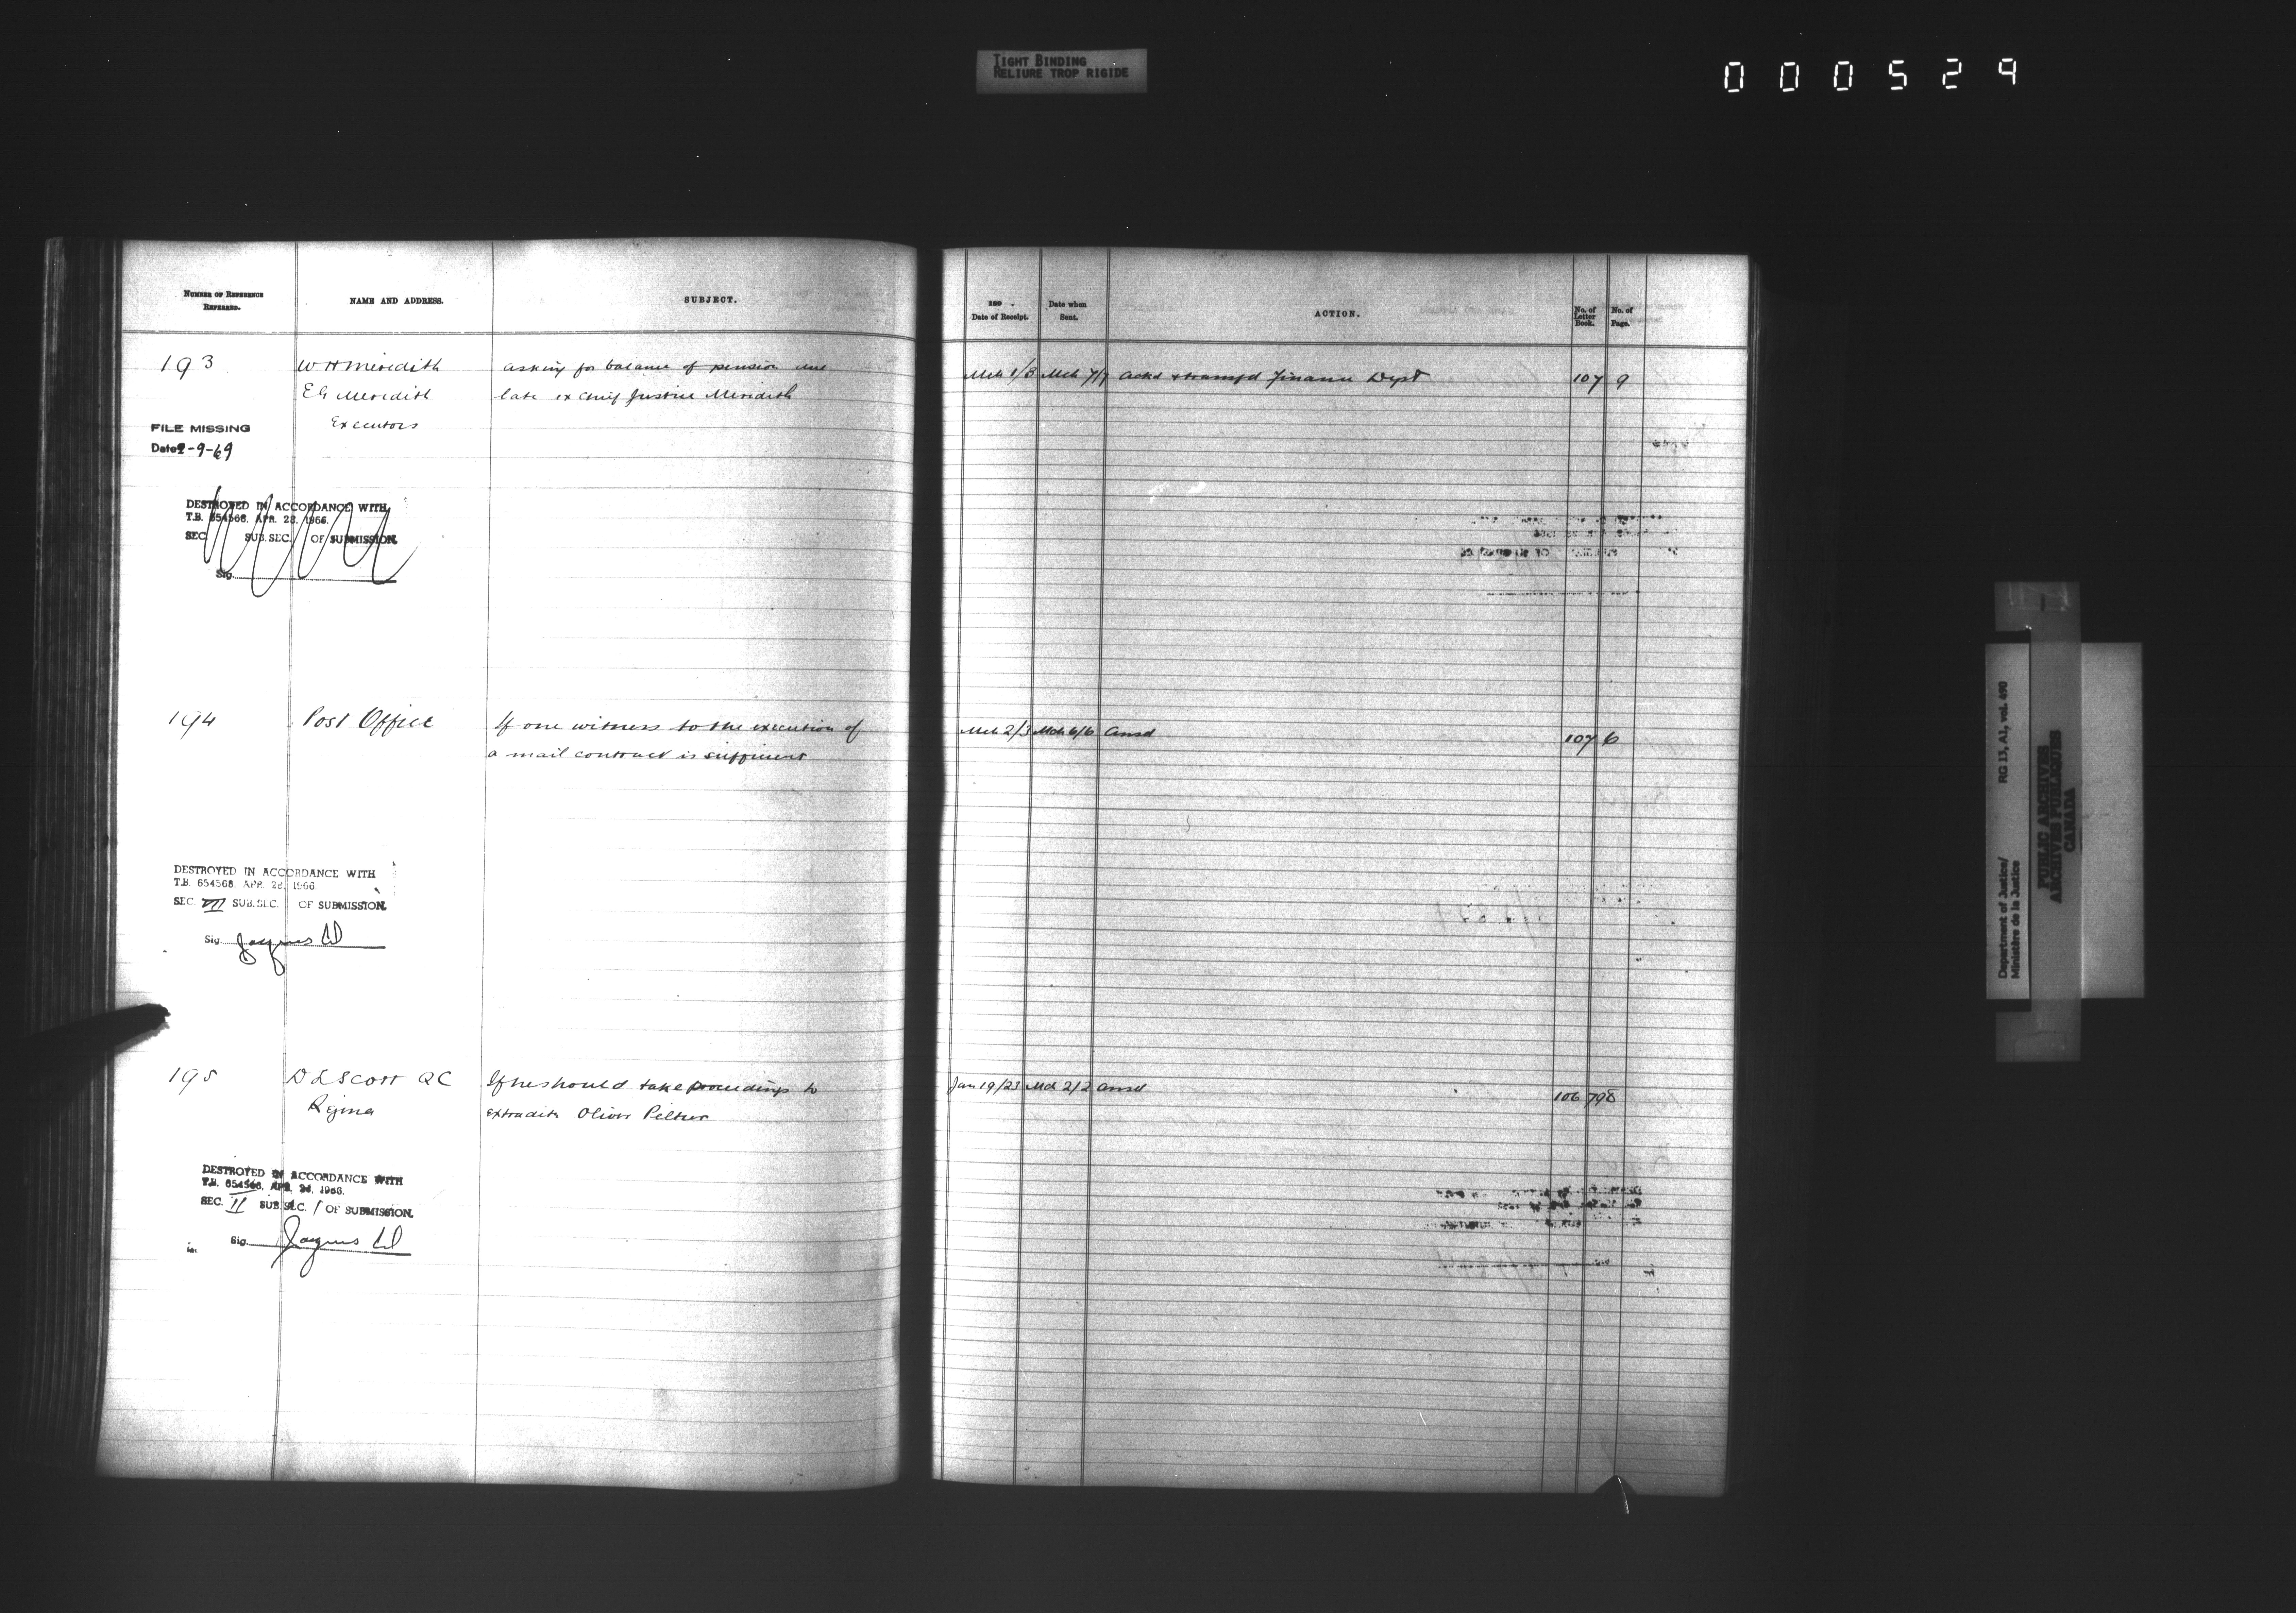 TIGHT BINDING
RELIURE TROP RIGIDE
000529
NUMBER OF REFERENCE
REFERRED.
NAME AND ADDRESS.
SUBJECT.
193
W H Meredith
E G Meredith
Executors
asking for balance of pension due
late ex Chief Justice Meredith
FILE MISSING
Date -9-69
DESTROYED IN ACCORDANCE WITH
T.B. 654566. APR. 28. 1966.
SEC. SUB.SEC. OF SUBMISSION.
Sig.
194
Post Office
If one witness to the execution of
a mail contract is sufficient
DESTROYED IN ACCORDANCE WITH
T.B. 654566. APR. 28. 1966.
SEC. VII SUB.SEC. OF SUBMISSION.
Sig. Jacques
195
D L Scott QC
Regina
If he should take proceedings to
extradite Oliver Peltier
DESTROYED IN ACCORDANCE WITH
T.B. 654566. APR. 28. 1966.
SEC. II SUB.SEC. 1 OF SUBMISSION.
Sig. Jacques
189 .
Date of Receipt.
Date when
Sent.
ACTION.
No. of
Letter
Book.
No. of
Page.
Mch 1/3 Mch 7/7 Ackd & transfd Finance Dept 107 9
Mch 2/3 Mch 6/6 Ansd 107 6
Jan 19/23 Mch 2/2 Ansd 106 798
Department of Justice/
Ministère de la Justice
RG 13, A1, vol. 490
PUBLIC ARCHIVES
ARCHIVES PUBLIQUES
CANADA